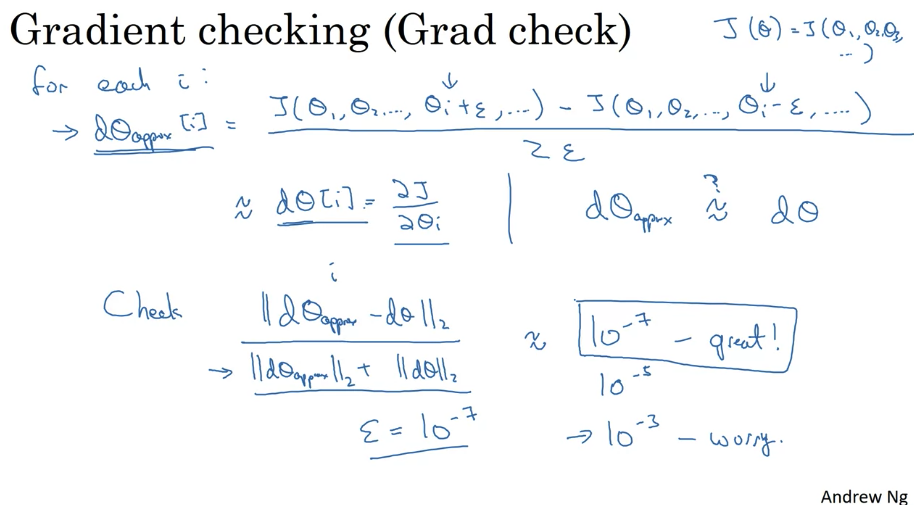 Gradient checking (Grad check)
J(θ) = J(θ₁, θ₂, θ₃, ...)
for each i:
→ dθapprox[i] = J(θ₁, θ₂, ..., θi + ε, ...) - J(θ₁, θ₂, ..., θi - ε, ....) / 2ε
≈ dθ[i] = ∂J/∂θi | dθapprox ≈? dθ
i
Check ||dθapprox - dθ||₂ ≈ 10⁻⁷ - great!
→ ||dθapprox||₂ + ||dθ||₂ 10⁻⁵
ε = 10⁻⁷ → 10⁻³ - worry.
Andrew Ng